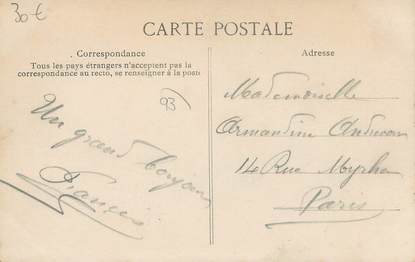 30€
CARTE POSTALE
Correspondance
Tous les pays étrangers n'acceptent pas la
correspondance au recto, se renseigner à la poste
93
Un grand bonjour
Francis
Adresse
Mademoiselle
Armandine
14 Rue Myrha
Paris